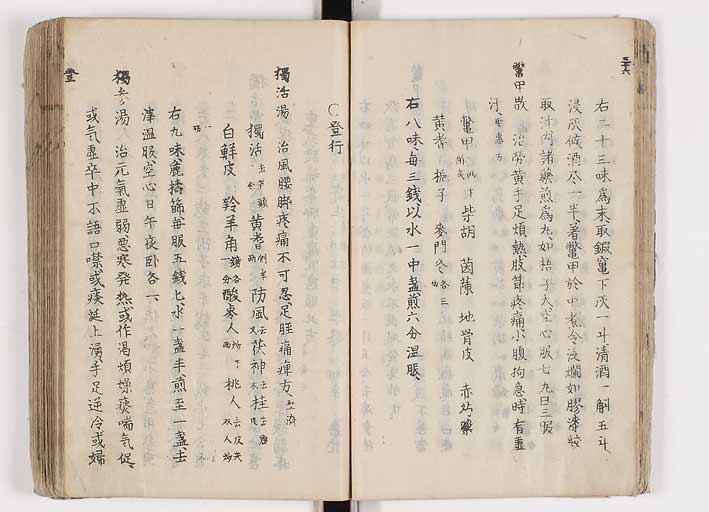 右二十三味為末取鍛竃下灰一斗清酒一斛五斗
浸灰候酒尽一半著鱉甲於中煮令泛爛如膠漆絞
取汁内諸藥煎為丸如梧子大空心服七丸日三服
鱉甲散 治労黄手足煩熱肢節疼痛小腹拘急時有虚
汗 聖惠方
鱉甲 柴胡 茵蔯 地骨皮 赤芍藥
黄耆 梔子 麥門冬 各三
右八味每三錢以水一中盞煎六分温服
〇登行
獨活湯 治風腰脚疼痛不可忍足脛痛痺方
獨活 黄耆 防風 茯神 桂
白鮮皮 羚羊角 酸棗人 桃人
右九味麁擣篩每服五錢匕水一盞半煎至一盞去
滓温服空心日午夜卧各一
獨参湯 治元氣虚弱悪寒発熱或作渴煩燥痰喘気促
或気虚卒中不語口噤或痰涎上湧手足逆冷或婦
登